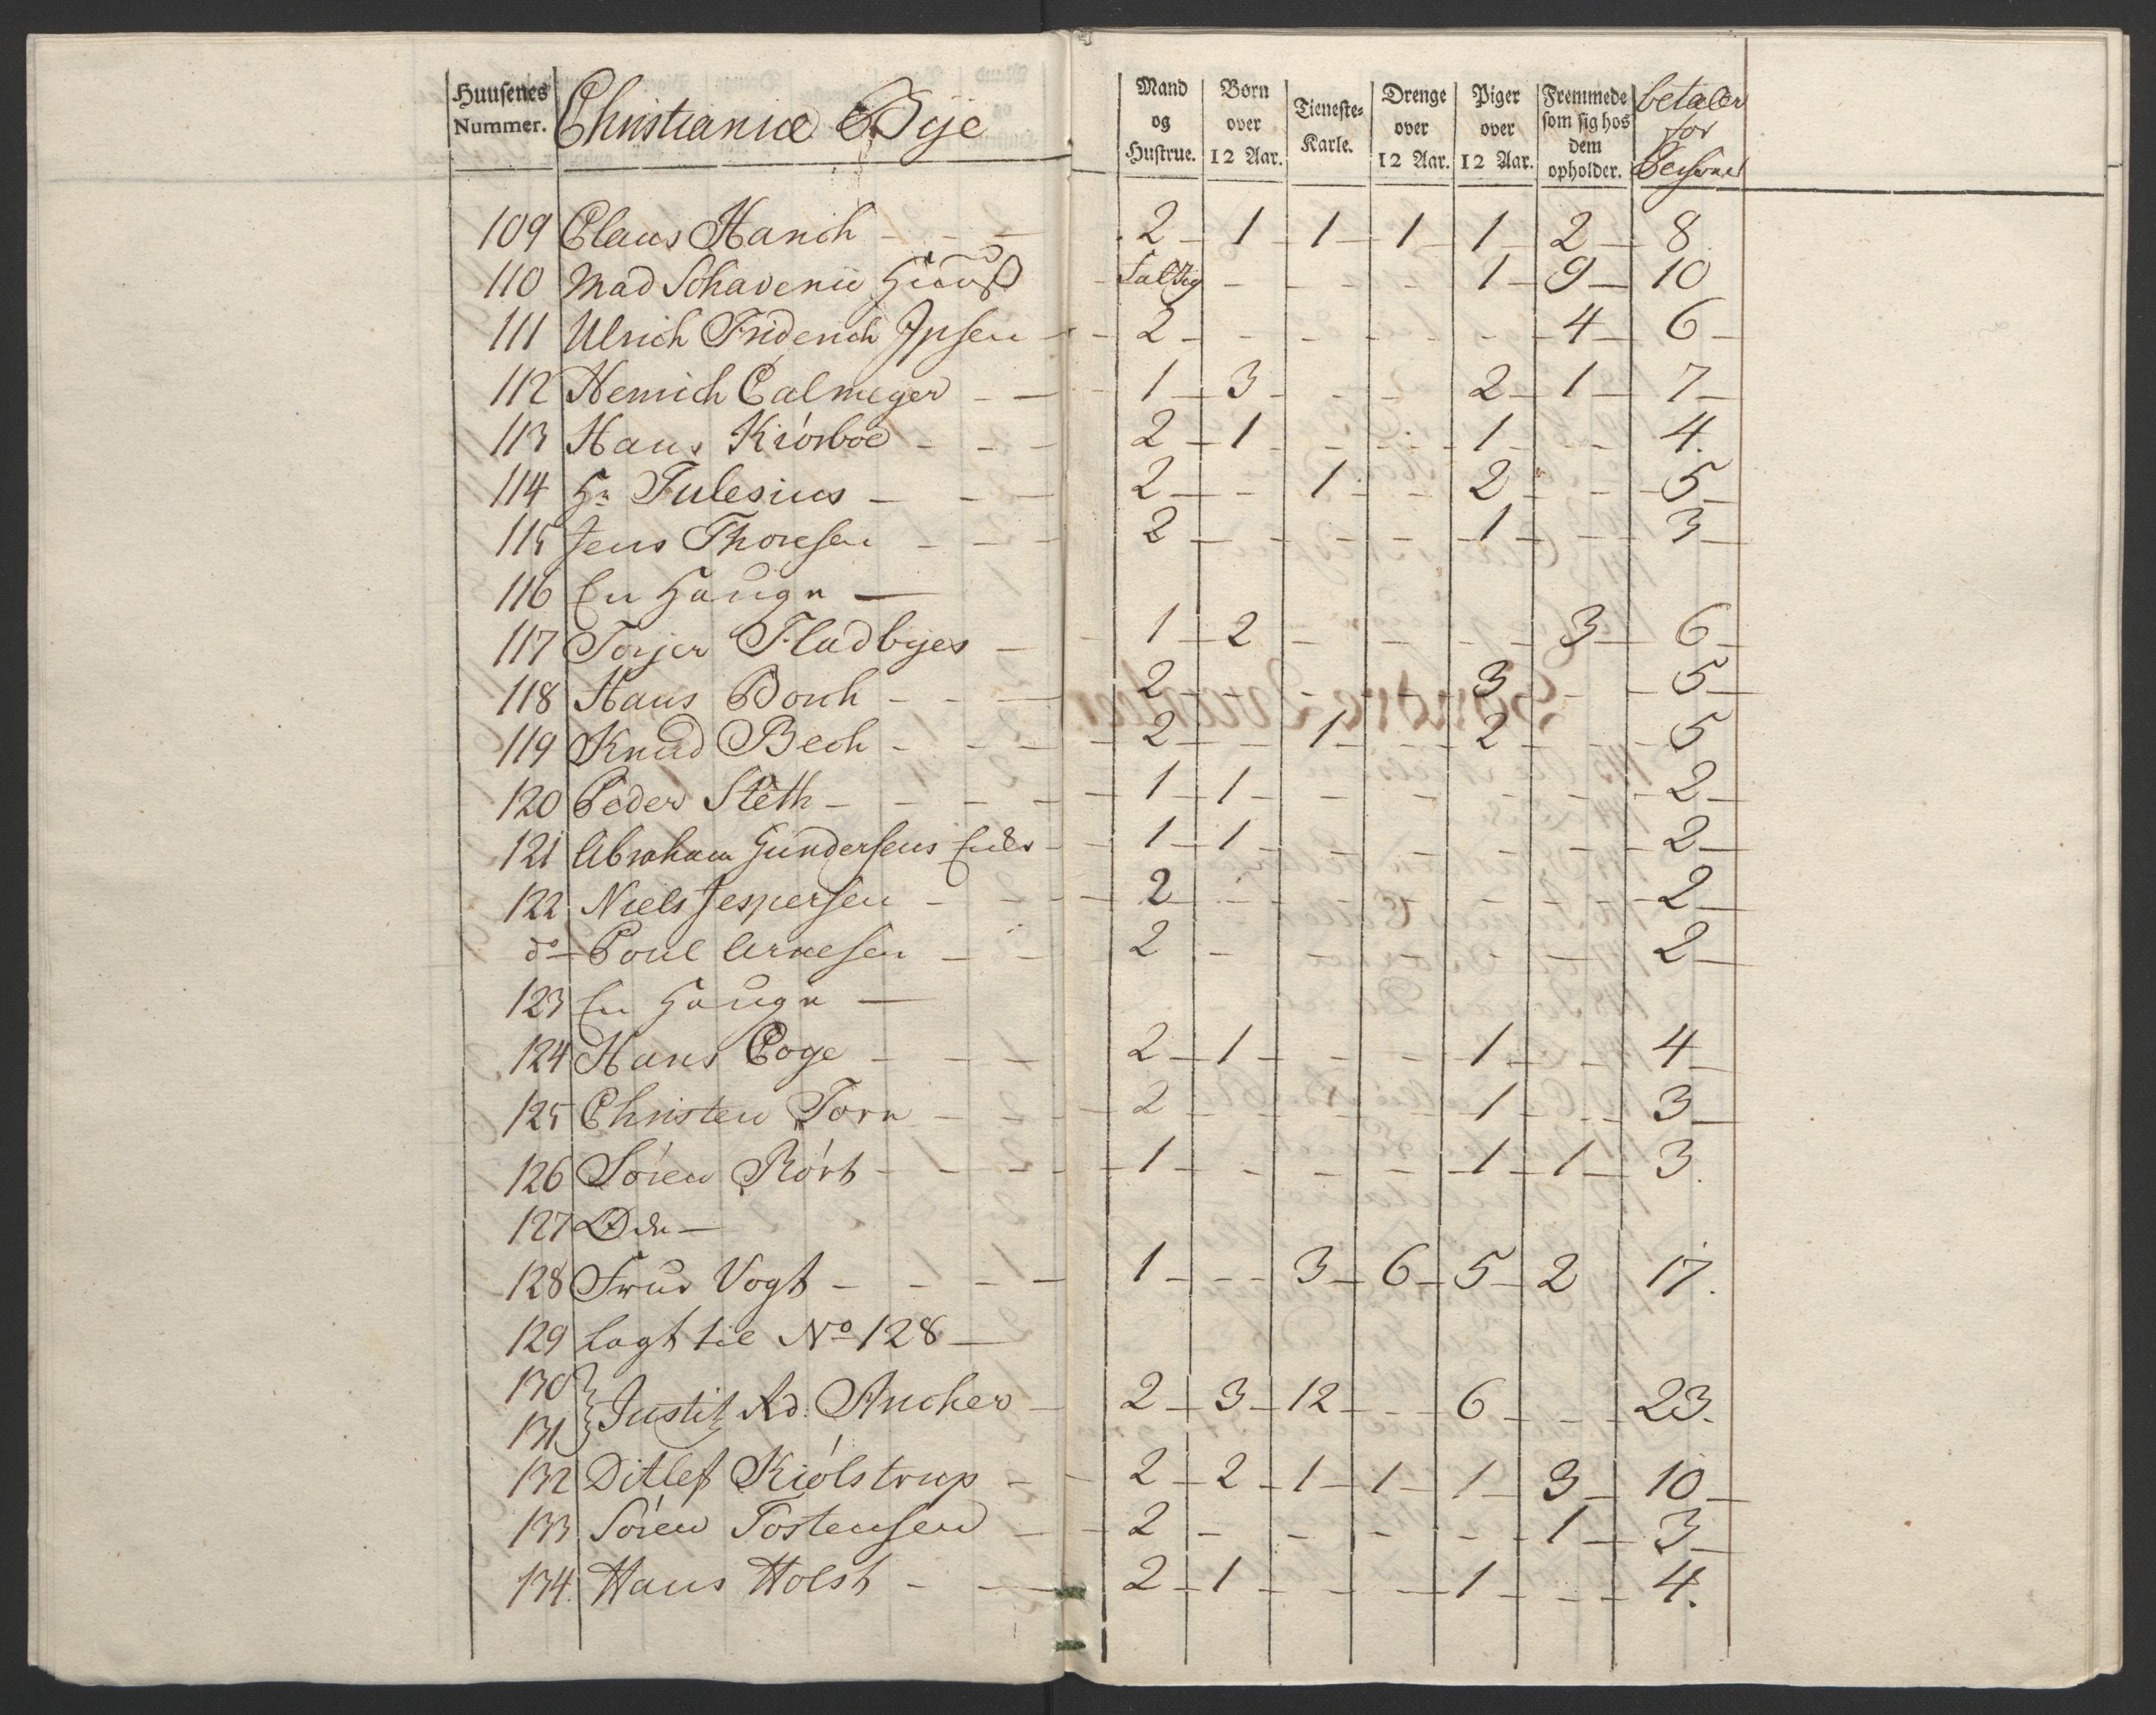 Huusenes Nummer. Christianiæ Bÿe Mand og Hustrue. Børn over 12 Aar. Tieneste-Karle. Drenge over 12 Aar. Piger over 12 Aar. Fremmede som sig hos dem opholder. betaler for Personer
109 Claus Hanch - - 2 1 1 1 1 2 8
110 Mad Schavenii Huus fattig - - - - 1 9 10
111 Ulrich Friderich Ipsen - 2 - - - - 4 6
112 Henrich Calmeyer - - 1 3 - - 2 1 7
113 Hans Kiørboe - - - 2 1 - - 1 - 4.
114 Hr Fulesius - - - 2 - 1 - 2 - 5
115 Jens Thoresen - - - 2 - - - 1 - 3
116 En Hauge -
117 Torjer Fladbyes - 1 2 - - - 3 6
118 Hans Borch - - - 2 - - - 3 - 5
119 Knud Bech - - - 2 - 1 - 2 - 5
120 Peder Steth - - - - 1 1 - - - - 2
121 Abraham Gundersens Enke - 1 1 - - - - 2
122 Niels Jespersen - - 2 - - - - - 2
do Poul Arnesen - - 2 - - - - - 2
123 En Hauge -
124 Hans Poge - - - 2 1 - - 1 - 4
125 Christen Torn - - 2 - - - 1 - 3
126 Søren Rørb - - - - 1 - - - 1 1 3.
127 Øde -
128 Frue Vogt - - - - 1 - 3 6 5 2 17.
129 Lagt til No 128 -
130
131 } Justitz Rd: Ancher - 2 3 12 - 6 - 23.
132 Ditlef Kiølstrup - - 2 2 1 1 1 3 10
133 Søren Tostensen - - 2 - - - - 1 3
134. Hans Holst - - 2 1 - - 1 - 4.